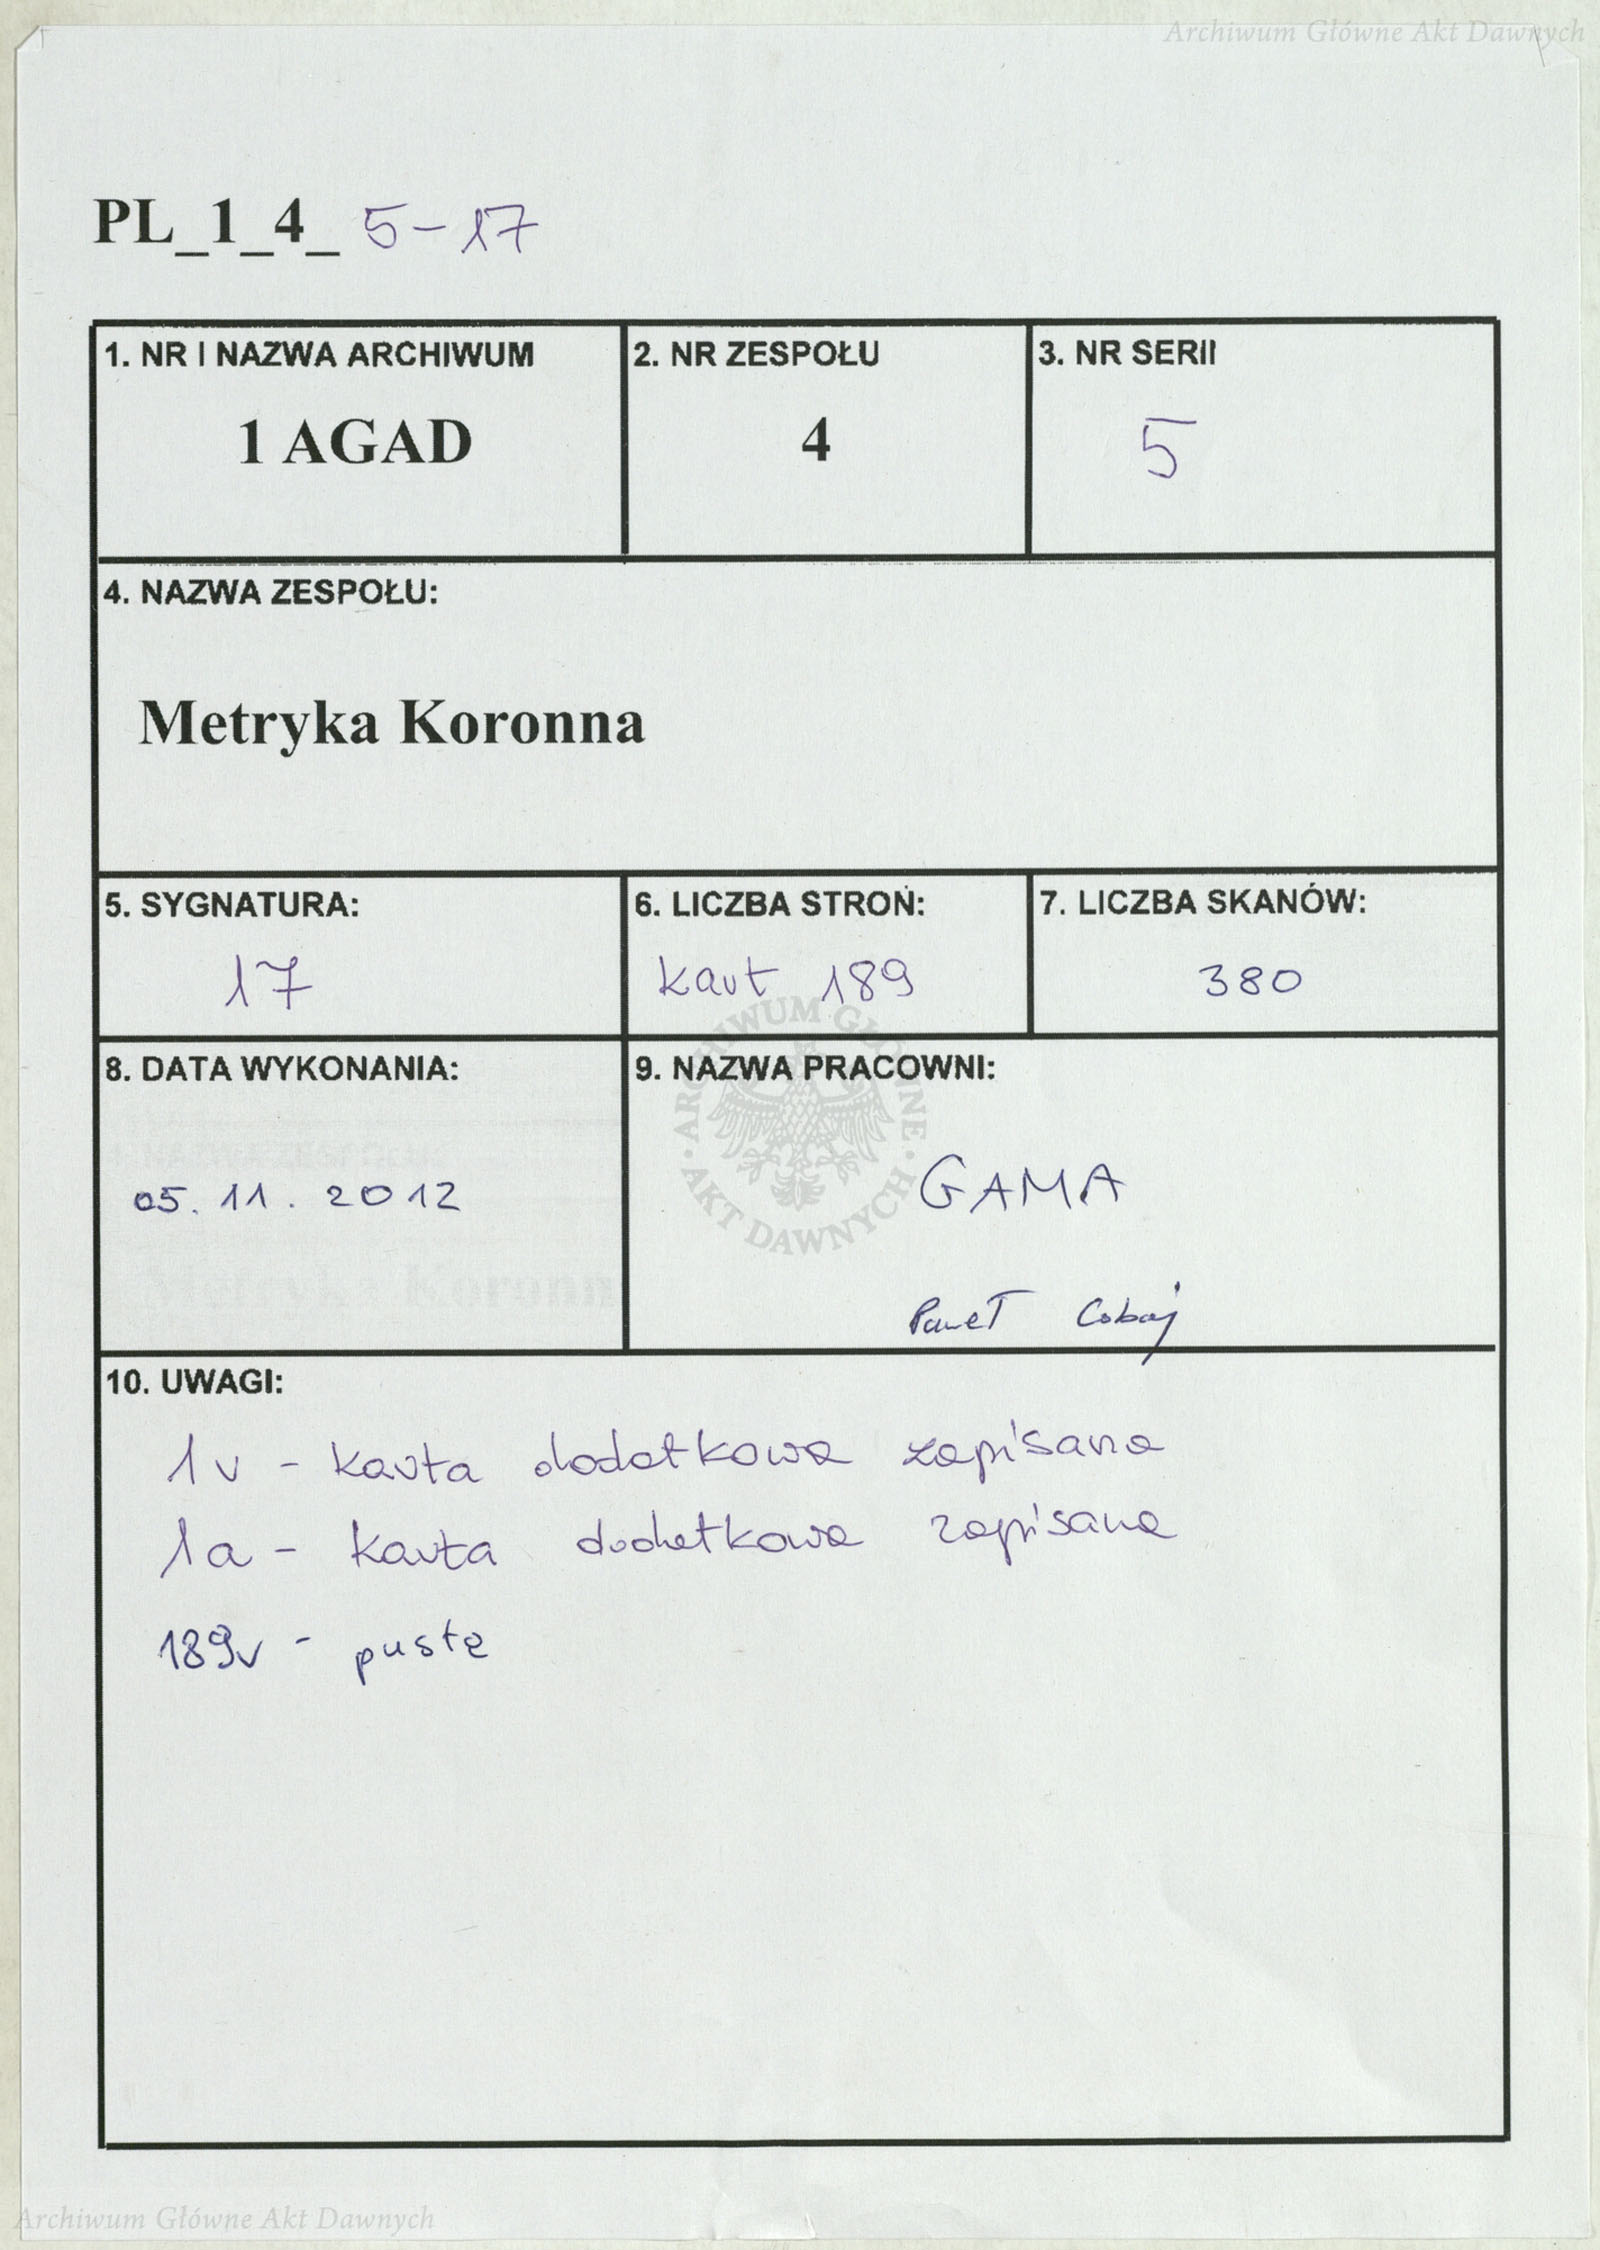 Archiwum Główne Akt Dawnych
PL_1_4_ 5-17
1. NR I NAZWA ARCHIWUM
1 AGAD
2. NR ZESPOŁU
4
3. NR SERII
5
4. NAZWA ZESPOŁU:
Metryka Koronna
5. SYGNATURA:
17
6. LICZBA STRON:
kart 189
7. LICZBA SKANÓW:
380
8. DATA WYKONANIA:
05.11.2012
9. NAZWA PRACOWNI:
GAMA
Paweł Cobaj
ARCHIWUM GŁÓWNE · AKT DAWNYCH ·
10. UWAGI:
1v - karta dodatkowa zapisana
1a - karta dodatkowa zapisana
189v - pusta
Archiwum Główne Akt Dawnych